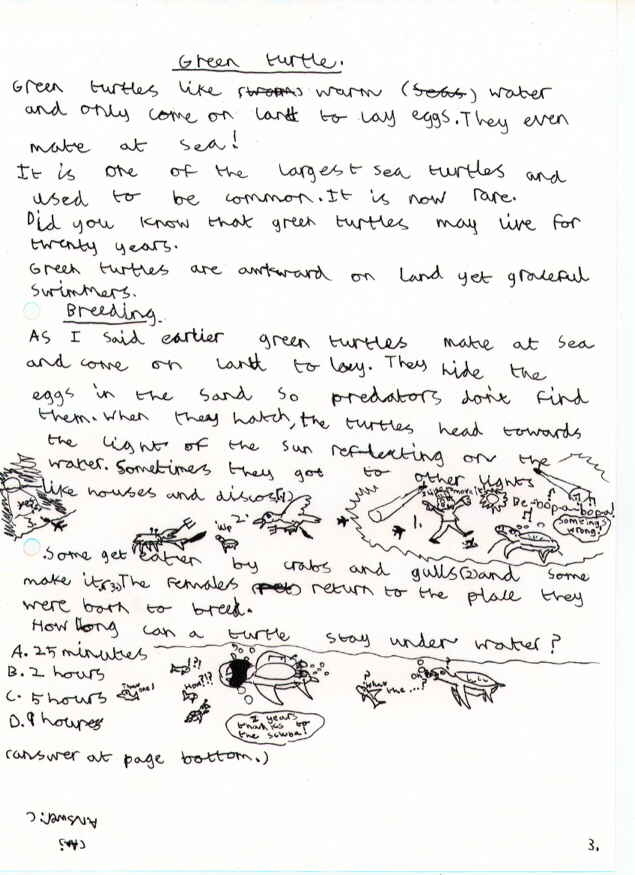 Green turtle.
Green turtles like warm (seas) water
and only come on land to lay eggs. They even
mate at sea!
It is one of the largest sea turtles and
used to be common. It is now rare.
Did you know that green turtles may live for
twenty years.
Green turtles are awkward on land yet graceful
swimmers.
Breeding.
As I said earlier green turtles mate at sea
and come on land to lay. They hide the
eggs in the sand so predators don't find
them. When they hatch, the turtles head towards
the light of the sun reflecting on the
water. Sometimes they got to other lights
like houses and discos(1)
yes!
3.
2.
1.
De-bopa-bopa!
Something's wrong?
.Some get eaten by crabs and gulls(2)and some
make it(3).The females return to the place they
were born to breed.
How long can a turtle stay under water?
A. 25 minutes
B. 2 hours
C. 5 hours
D. 9 hours
!?!
How?!?
?
what the...?
2 years thanks to the scuba!
(answer at page bottom.)
Answer: C
3.